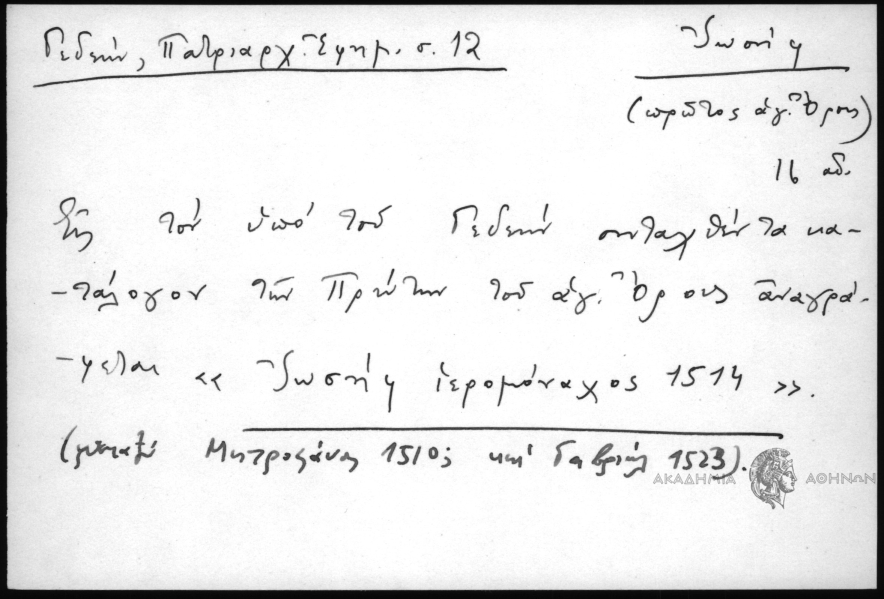 Γεδεών, Πατριαρχ. Ἐφημ. σ. 12
Ἰωσήφ
(πρῶτος ἁγ. Ὄρους)
16 αἰ.
Εἰς τόν ὑπό τοῦ Γεδεών συνταχθέντα κα-
-τάλογον τῶν Πρώτων τοῦ ἁγ. Ὄρους ἀναγρά-
-φεται « Ἰωσήφ ἱερομόναχος 1514 ».
(μεταξύ Μητροφάνους 1510; καί Γαβριήλ 1523).
ΑΚΑΔΗΜΙΑ ΑΘΗΝΩΝ